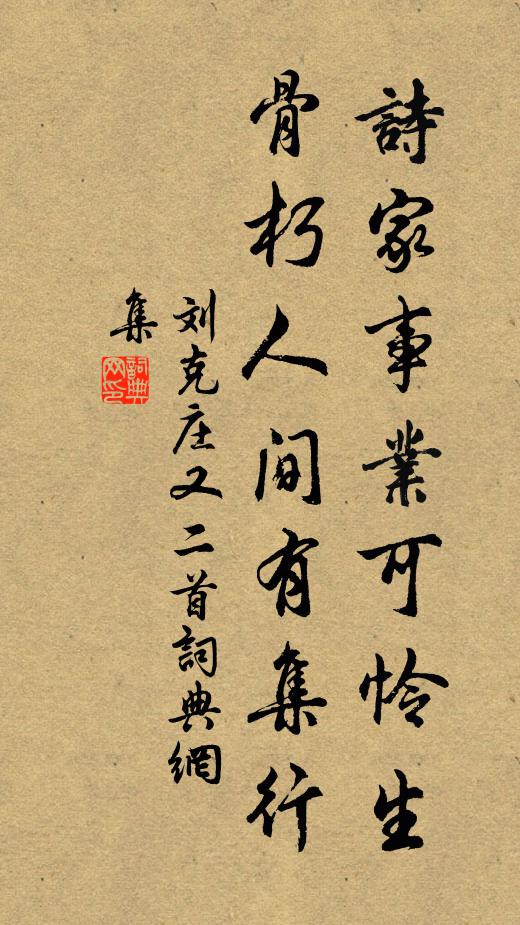 詩家事業可怜生
骨朽人间有集行
刘克庄又二首詞典網
集
詞典网印